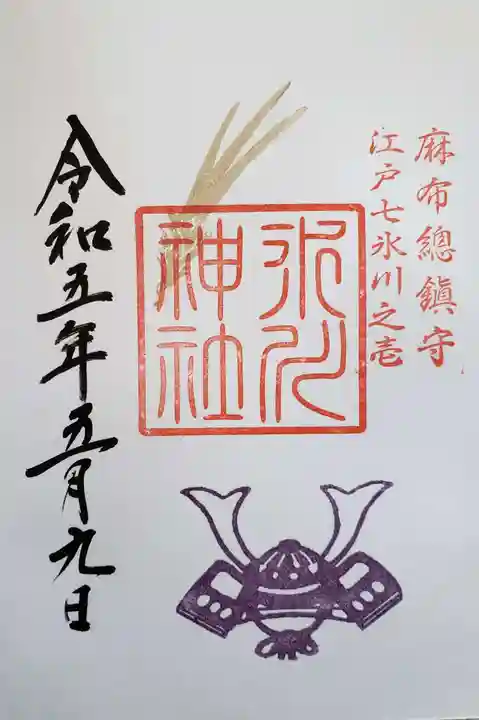 麻布總鎮守
江戸七氷川之壱
氷川
神社
令和五年五月九日